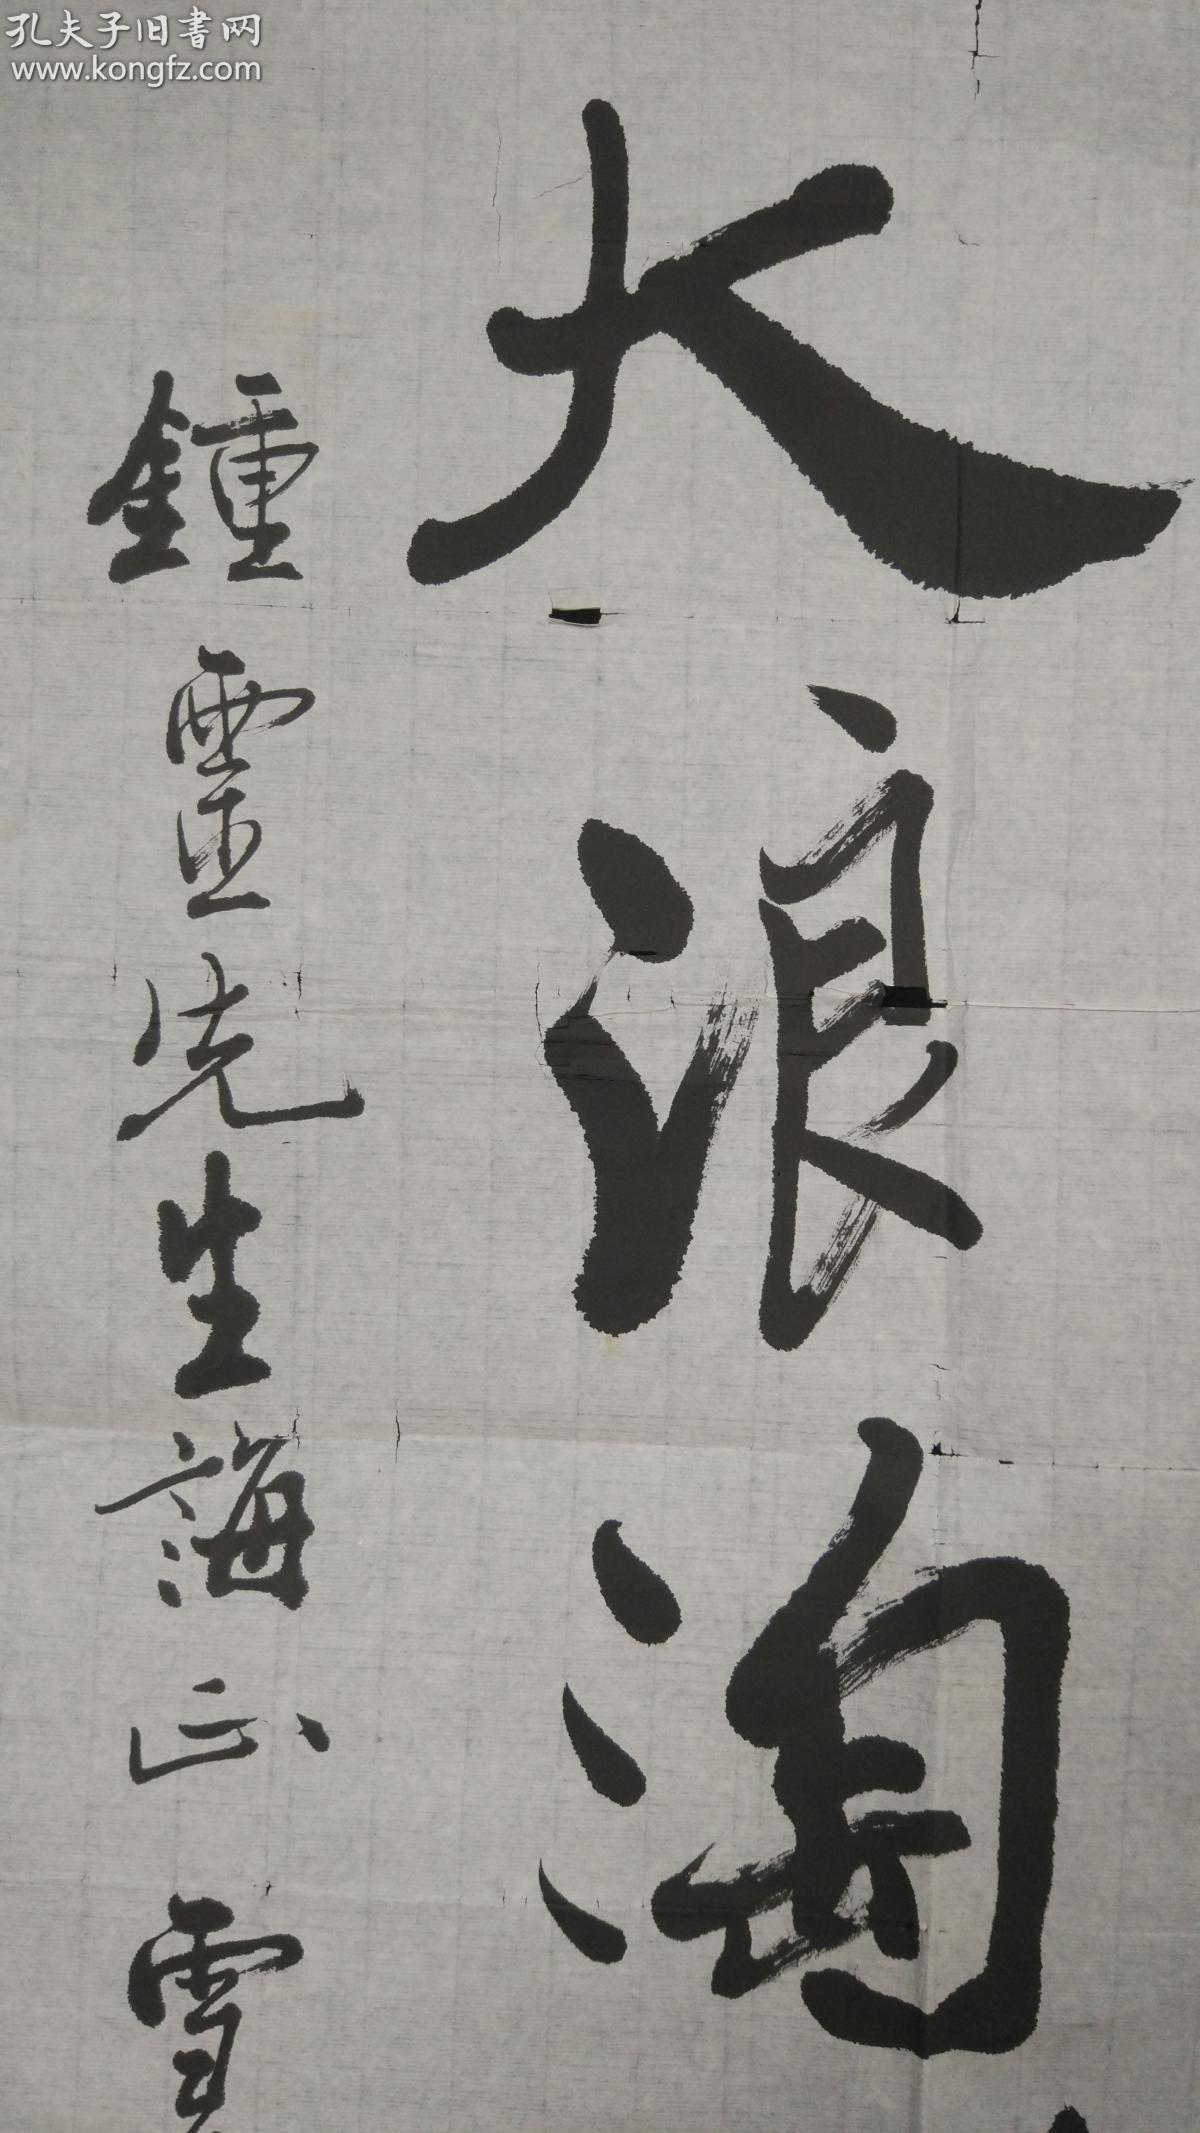 孔夫子旧書网
www.kongfz.com
大浪淘
鍾靈先生誨正 雪